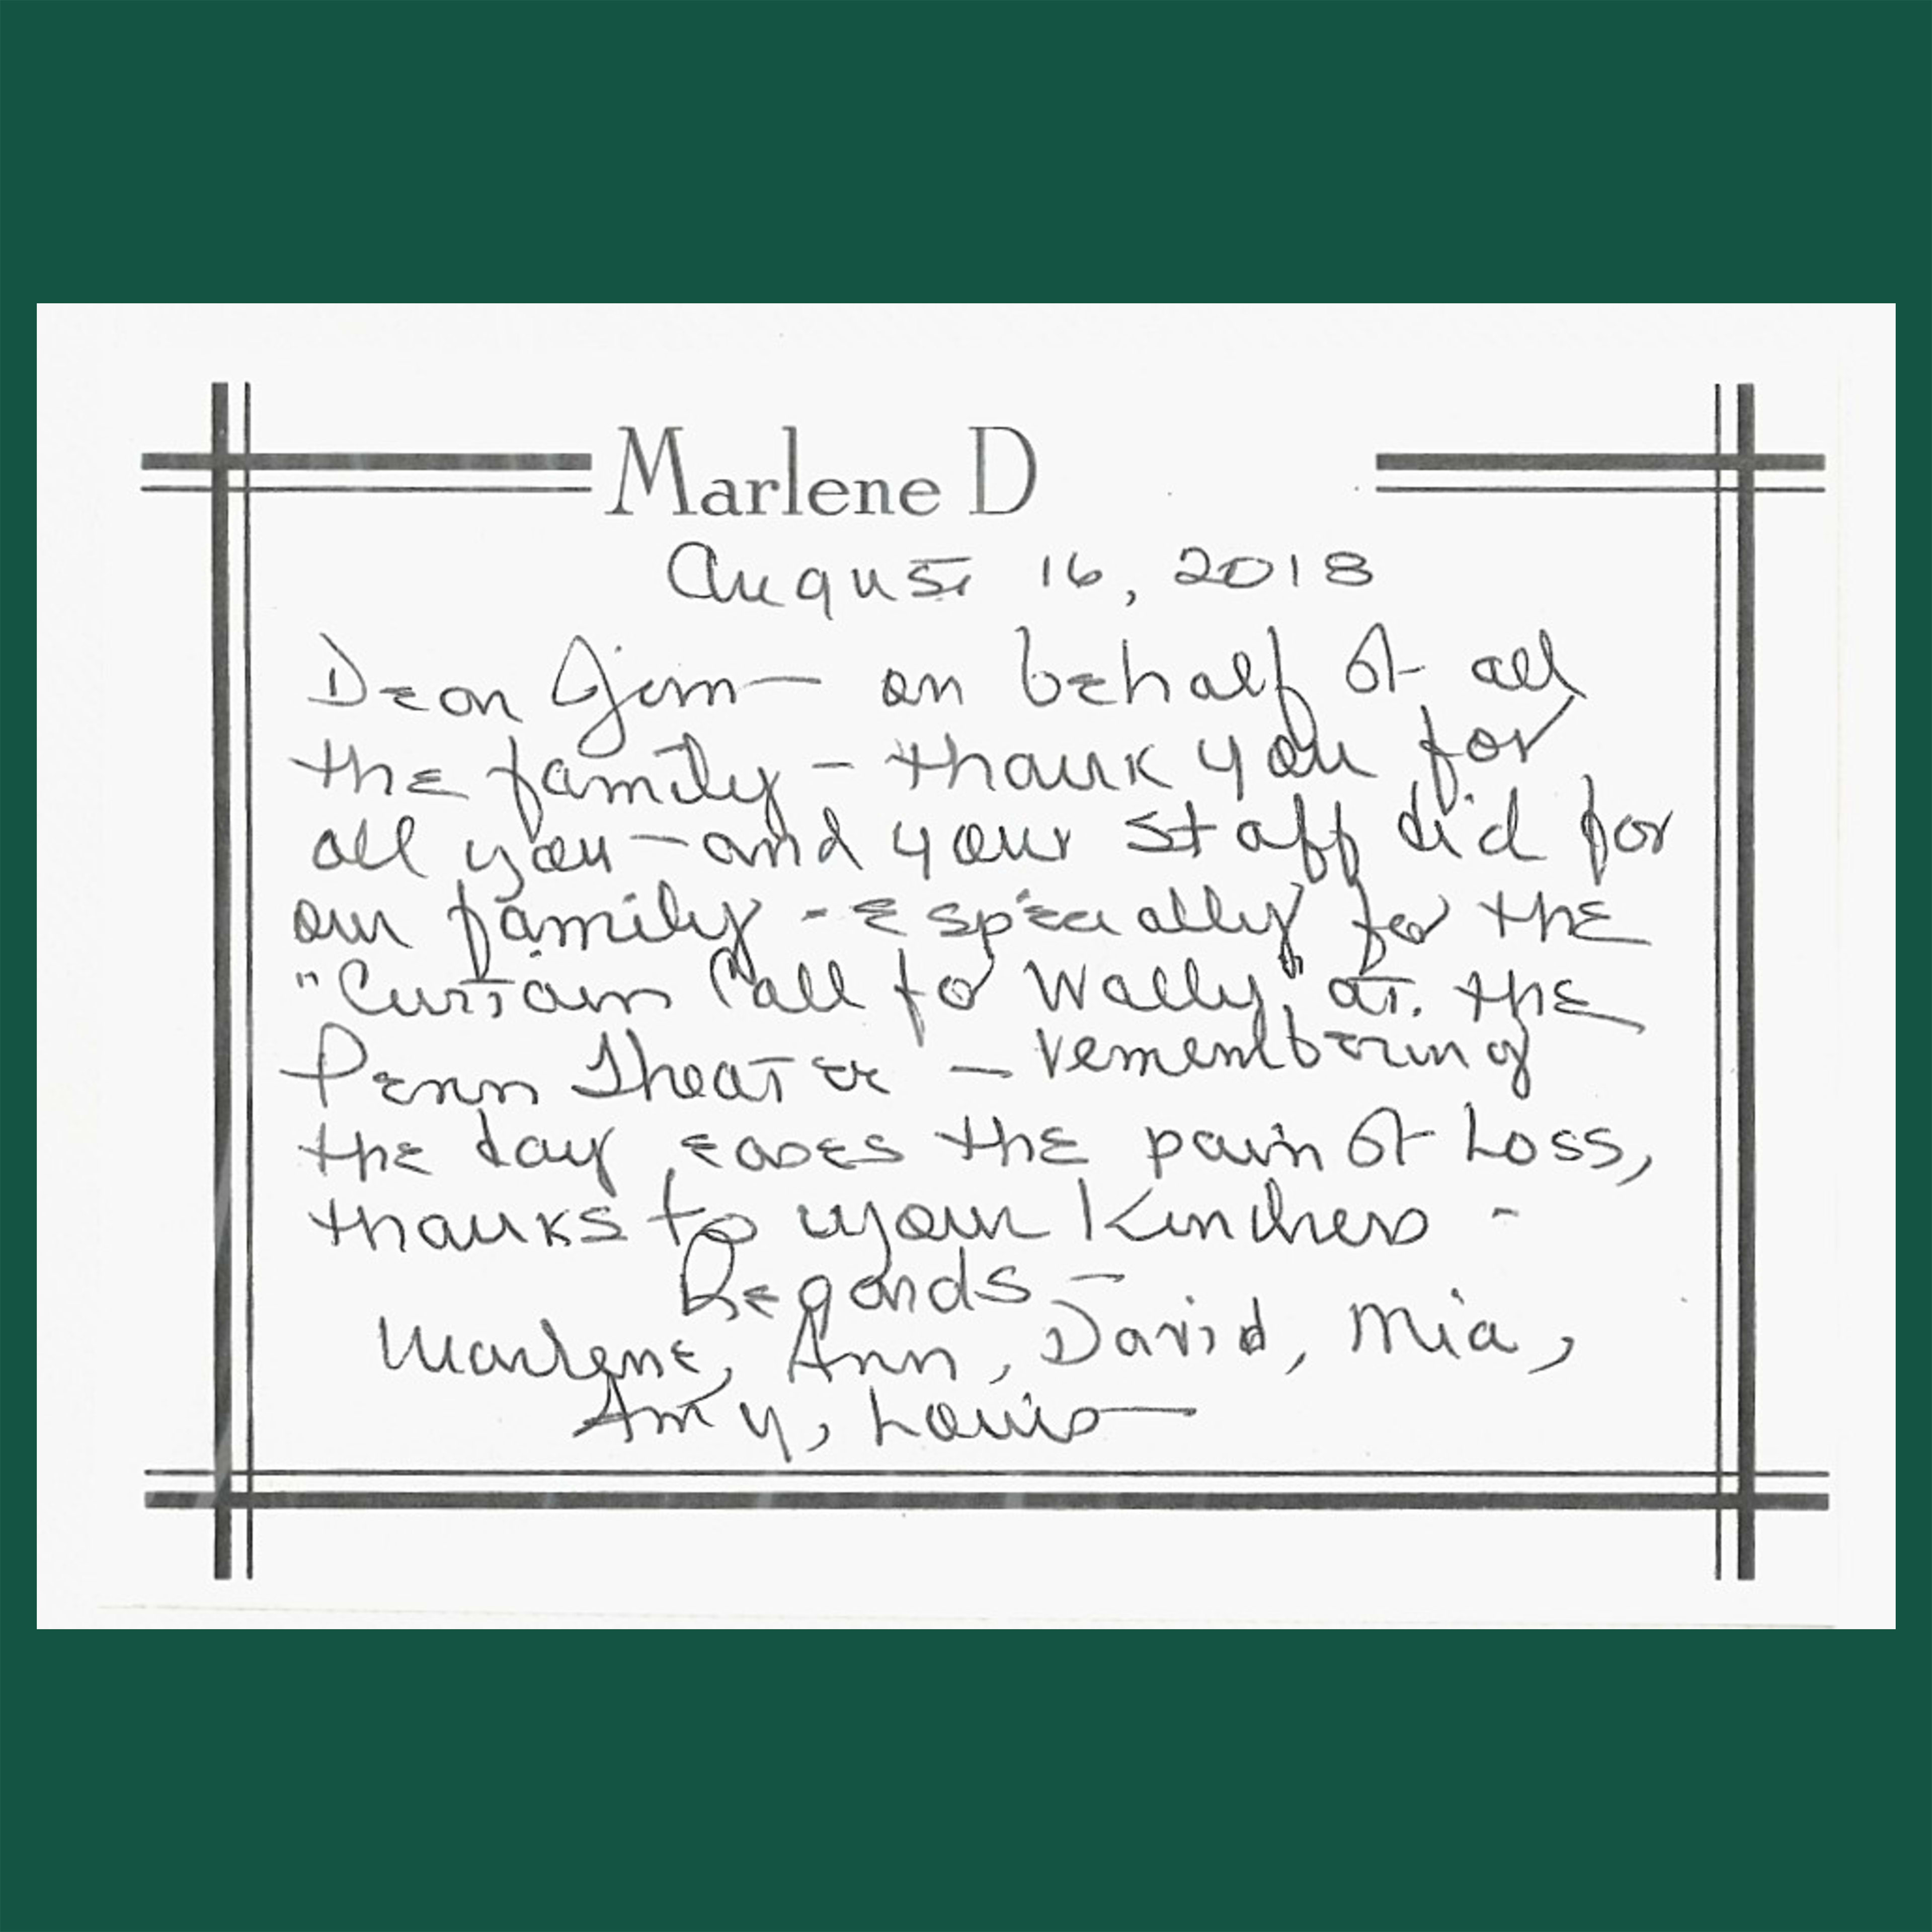 Marlene D
August 16, 2018
Dear Jim — on behalf of all
the family – thank you for
all you – and your staff did for
our family - especially for the
"Curtain Call for Wally" at the
Penn Theater – remembering
the day eases the pain of Loss,
thanks to your Kindness -
Regards –
Marlene, Ann, David, Mia,
Amy, Louis —